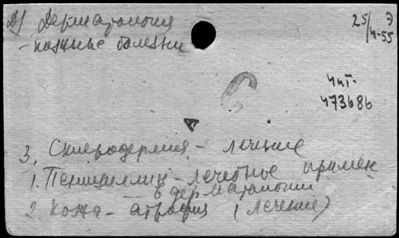 Д) Дерматология
- кожные болезни
25/4-55 Э
Чит.
473686
3. Склеродермия - лечение
1. Пенициллин - лечебное примен.
в дерматологии
2. Кожа - атрофия (лечение)